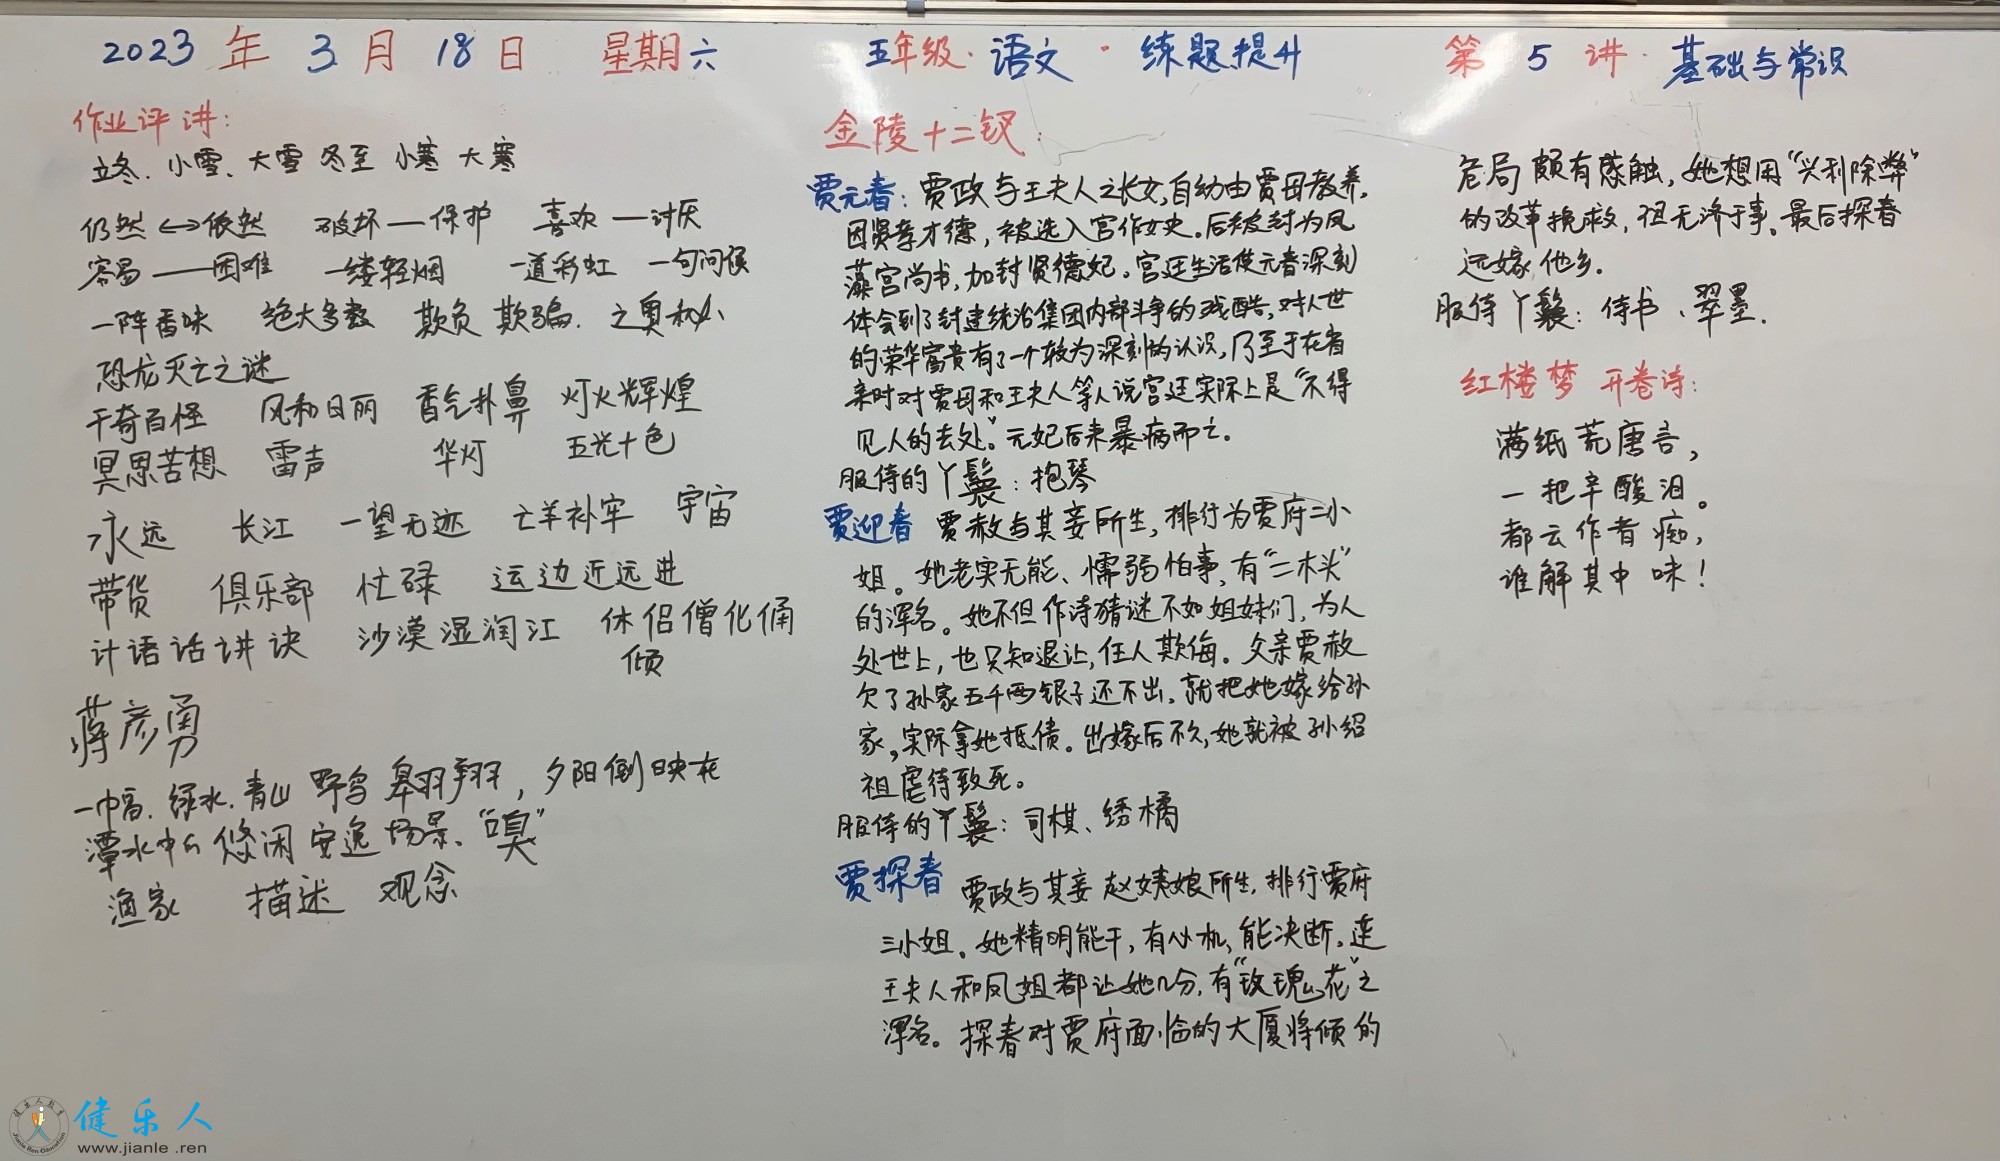 2023 年 3 月 18 日 星期六 五年级·语文·练题提升 第 5 讲·基础与常识
作业评讲:
立冬、小雪、大雪 冬至 小寒 大寒
仍然↔依然 破坏—保护 喜欢—讨厌
容易——困难 一缕轻烟 一道彩虹 一句问候
一阵香味 绝大多数 欺负 欺骗. 之奥秘
恐龙灭亡之谜
千奇百怪 风和日丽 香气扑鼻 灯火辉煌
冥思苦想 雷声 华灯 五光十色
永远 长江 一望无边 亡羊补牢 宇宙
带货 俱乐部 忙碌 运边近远进
计语话讲诀 沙漠湿润江 休侣僧化俑
倾
蒋彦勇
一幅.绿水.青山 野鸟 翱翔, 夕阳倒映在
潭水中 悠闲 安逸 场景. “嗅”
渔家 描述 观念
金陵十二钗:
贾元春: 贾政与王夫人之长女,自幼由贾母教养.
因贤孝才德, 被选入宫作女史.后被封为凤
藻宫尚书,加封贤德妃。宫廷生活使元春深刻
体会到了封建统治集团内部斗争的残酷,对人世
的荣华富贵有了一个较为深刻的认识,乃至于在省
亲时对贾母和王夫人等人说宫廷实际上是“不得
见人的去处”。元妃后来暴病而亡。
服侍的丫鬟: 抱琴
贾迎春 贾赦与其妾所生, 排行为贾府二小
姐。她老实无能、懦弱怕事,有“二木头”
的浑名。她不但作诗猜谜不如姐妹们, 为人
处世上, 也只知退让,任人欺侮。父亲贾赦
欠了孙家五千两银子还不出, 就把她嫁给孙
家,实际拿她抵债。出嫁后不久,她就被孙绍
祖虐待致死。
服侍的丫鬟: 司棋、绣橘
贾探春 贾政与其妾赵姨娘所生, 排行贾府
三小姐. 她精明能干, 有心机, 能决断, 连
王夫人和凤姐都让她几分, 有“玫瑰花”之
浑名。探春对贾府面临的大厦将倾的
危局颇有感触, 她想用“兴利除弊”
的改革挽救, 但无济于事。最后探春
远嫁他乡。
服侍丫鬟: 侍书、翠墨.
红楼梦 开卷诗:
满纸荒唐言,
一把辛酸泪。
都云作者痴,
谁解其中味!
健乐人
www.jianle.ren